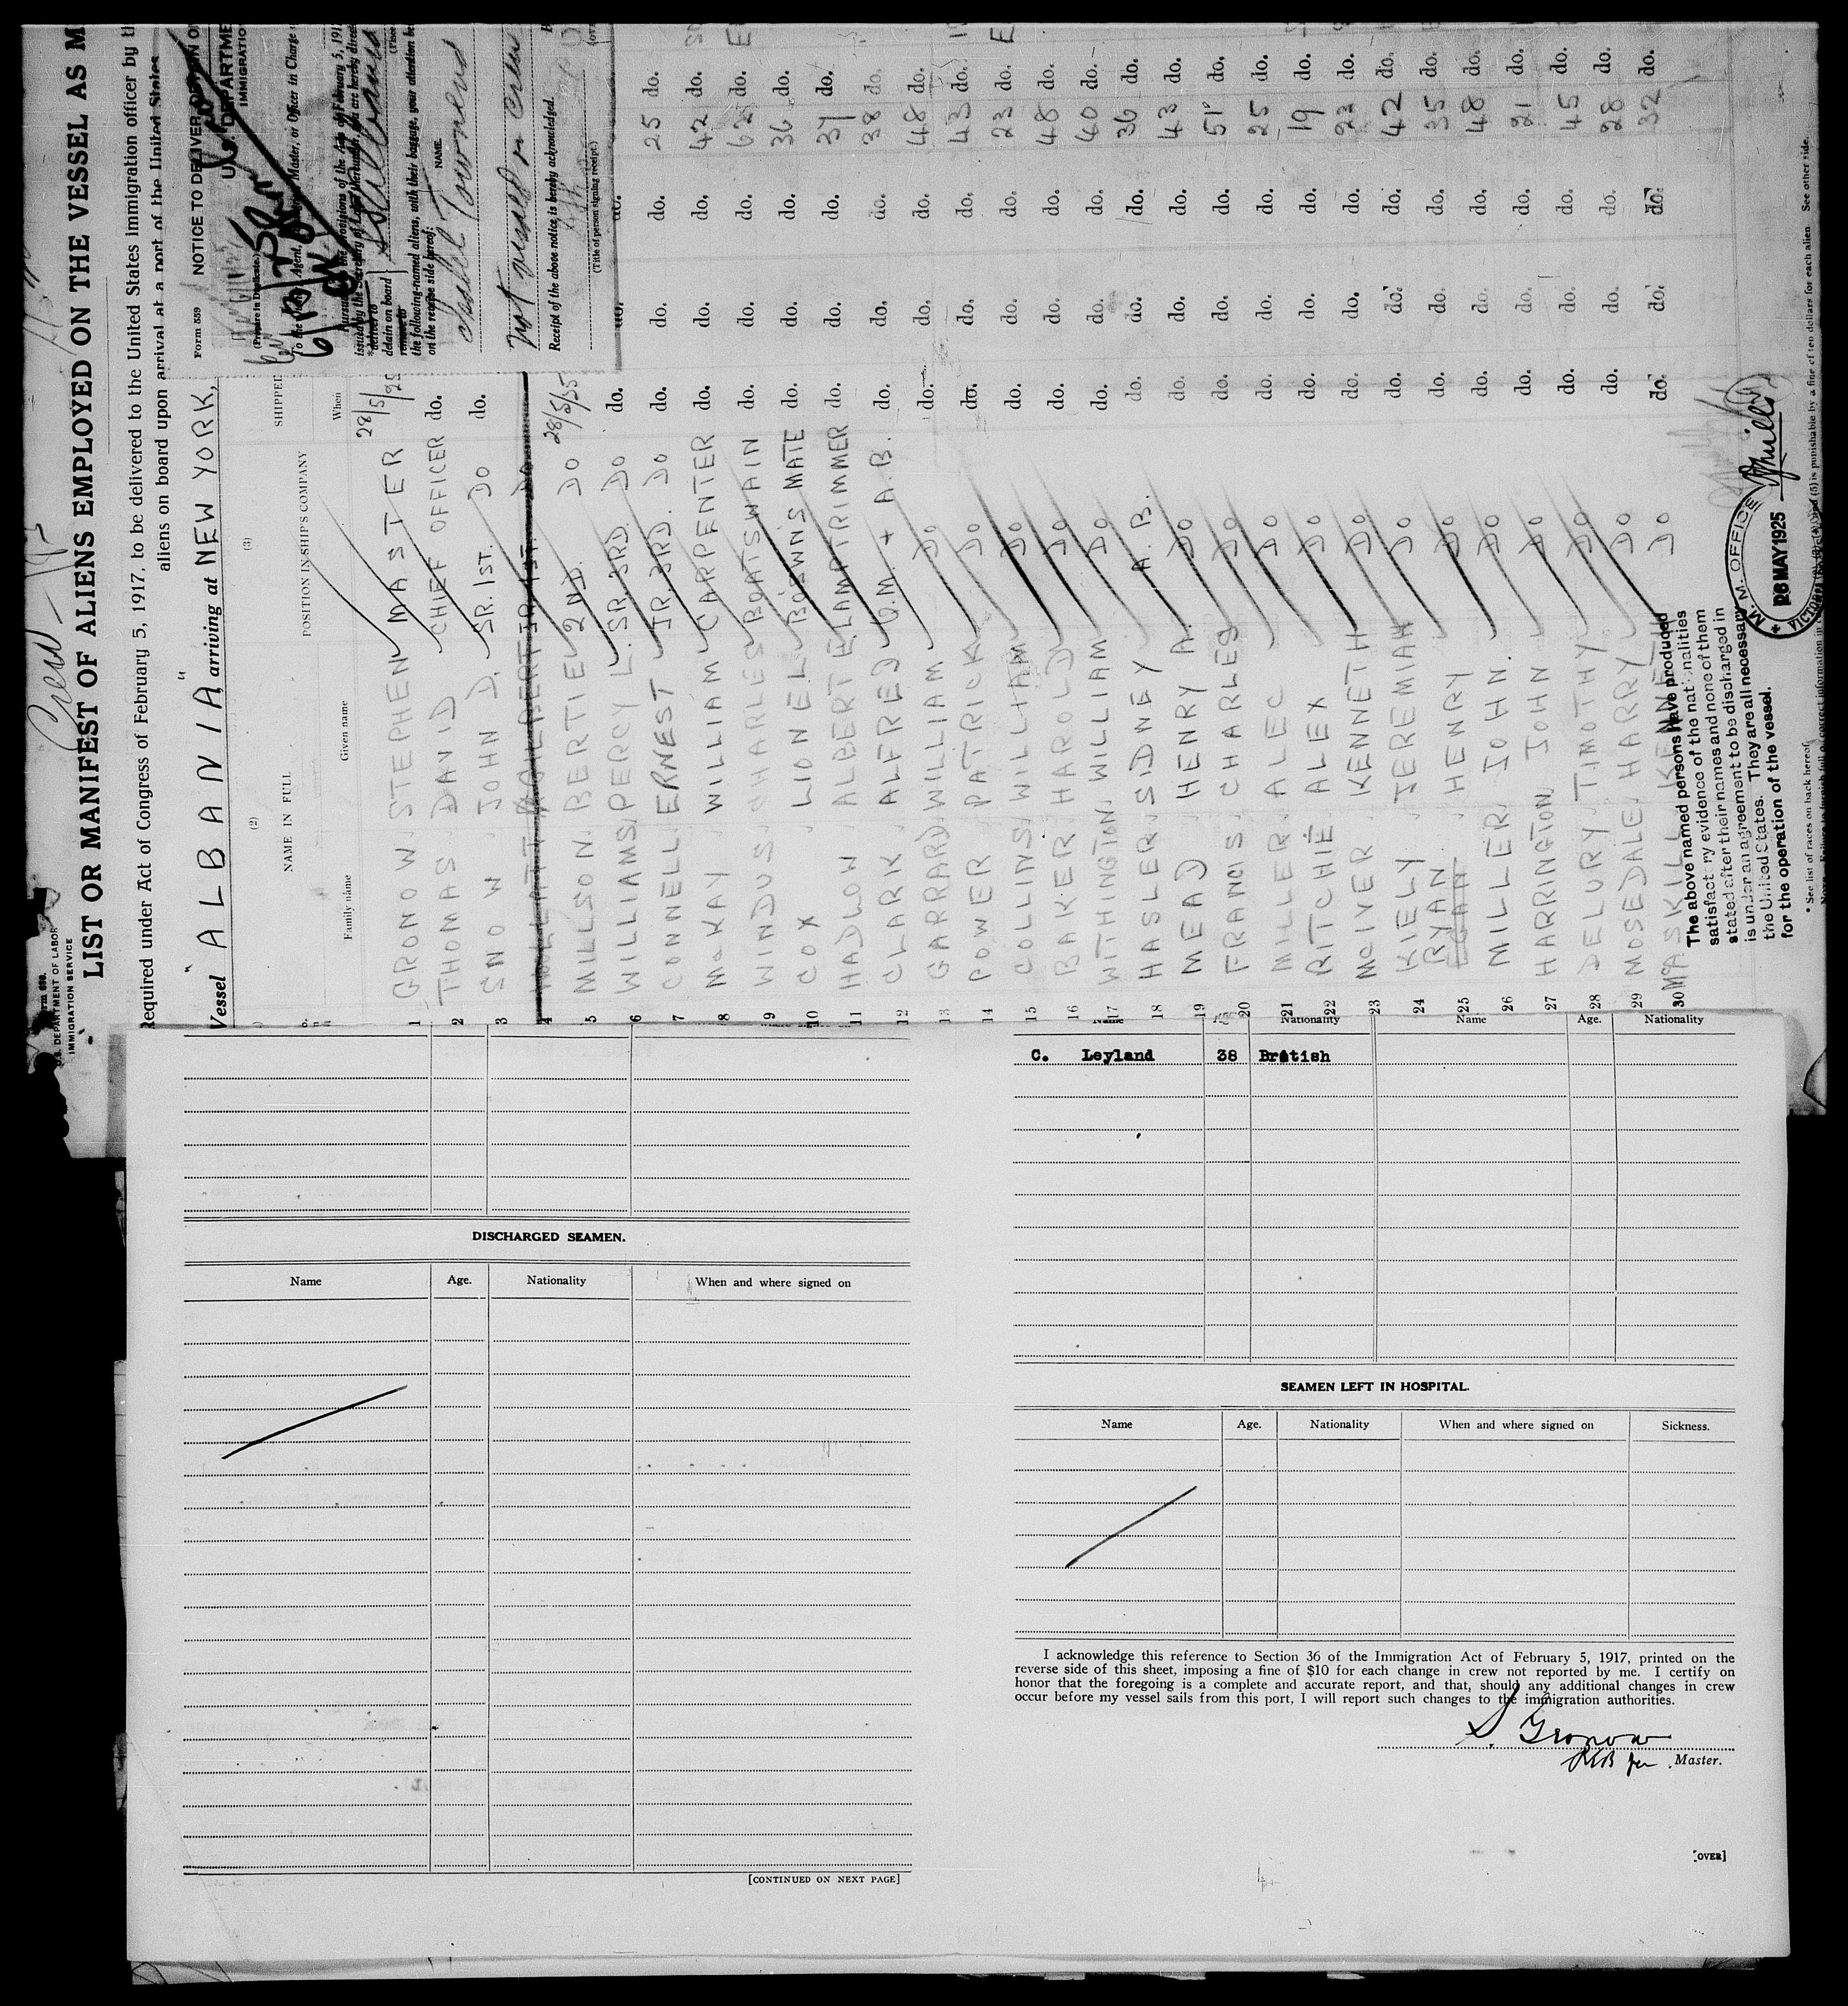 Crew
U.S. DEPARTMENT OF LABOR
IMMIGRATION SERVICE
LIST OR MANIFEST OF ALIENS EMPLOYED ON THE VESSEL AS M
Required under Act of Congress of February 5, 1917, to be delivered to the United States immigration officer by th
aliens on board upon arrival at a port of the United States
Vessel "ALBANIA", arriving at NEW YORK,
(2) (3)
NAME IN FULL POSITION IN SHIP'S COMPANY SHIPPED
Family name Given name When
1 GRONOW STEPHEN MASTER 28/5/25
2 THOMAS DAVID CHIEF OFFICER do.
3 SNOW JOHN D. SR. 1ST. DO do.
4 JR. 1ST. DO
5 MILLSON BERTIE 2ND. DO 28/5/25
6 WILLIAMS PERCY L. SR. 3RD. DO do.
7 CONNELL ERNEST JR. 3RD. DO do. do. do. 25 do.
8 McKAY WILLIAM CARPENTER do. do. do. 42 do.
9 WINDUS CHARLES BOATSWAIN do. do. do. 62 do.
10 COX LIONEL BOSWNS MATE do. do. do. 36 do.
11 HADLOW ALBERT E. LAMPTRIMMER do. do. do. 37 do.
12 CLARK ALFRED Q.M. + A.B. do. do. do. 38 do.
13 GARRARD WILLIAM DO do. do. do. 48 do.
14 POWER PATRICK DO do. do. do. 43 do.
15 COLLINS WILLIAM DO do. do. do. 23 do.
16 BAKER HAROLD DO do. do. do. 48 do.
17 WITHINGTON WILLIAM DO do. do. do. 40 do.
18 HASLER SIDNEY A.B. do. do. do. 36 do.
19 MEAD HENRY A. DO do. do. do. 43 do.
20 FRANCIS CHARLES DO do. do. do. 51 do.
21 MILLER ALEC DO do. do. do. 25 do.
22 RITCHIE ALEX DO do. do. do. 19 do.
23 McIVER KENNETH DO do. do. do. 22 do.
24 KIELY JEREMIAH DO do. do. do. 42 do.
25 RYAN HENRY DO do. do. do. 35 do.
EGAN
26 MILLER JOHN DO do. do. do. 48 do.
27 HARRINGTON JOHN DO do. do. do. 21 do.
28 DELURY TIMOTHY DO do. do. do. 45 do.
29 MOSEDALE HARRY DO do. do. do. 28 do.
30 MASKILL KENNETH DO do. do. do. 32 do.
The above named persons have produced
satisfactory evidence of the nationalities
stated after their names and none of them
is under an agreement to be discharged in
the United States. They are all necessary
for the operation of the vessel.
M. M. OFFICE
26 MAY 1925
VICTORIA
* See list of races on back hereof.
(5) is punishable by a fine of ten dollars for each alien. See other side.
Form 559 NOTICE TO DELIVER, DETAIN O
U. S. DEPARTME
IMMIGRATION
(Prepare in Duplicate.)
Master, or Officer in Charge
Pursuant to the provisions of the Act of February 5, 191
issued by the Secretary of Labor thereunder, you are hereby direc
deliver to
detain on board
remove to
the following-named aliens, with their baggage, your attention be
on the reverse side hereof:
NAME.
Townend
Not signed on crew
Receipt of the above notice is hereby acknowledged.
(Title of person signing receipt.)
DISCHARGED SEAMEN.
Name Age. Nationality When and where signed on
[CONTINUED ON NEXT PAGE]
Name Nationality Name Age. Nationality
C. Leyland 38 British
SEAMEN LEFT IN HOSPITAL.
Name Age. Nationality When and where signed on Sickness.
I acknowledge this reference to Section 36 of the Immigration Act of February 5, 1917, printed on the
reverse side of this sheet, imposing a fine of $10 for each change in crew not reported by me. I certify on
honor that the foregoing is a complete and accurate report, and that, should any additional changes in crew
occur before my vessel sails from this port, I will report such changes to the immigration authorities.
S. Gronow
Master.
[OVER]